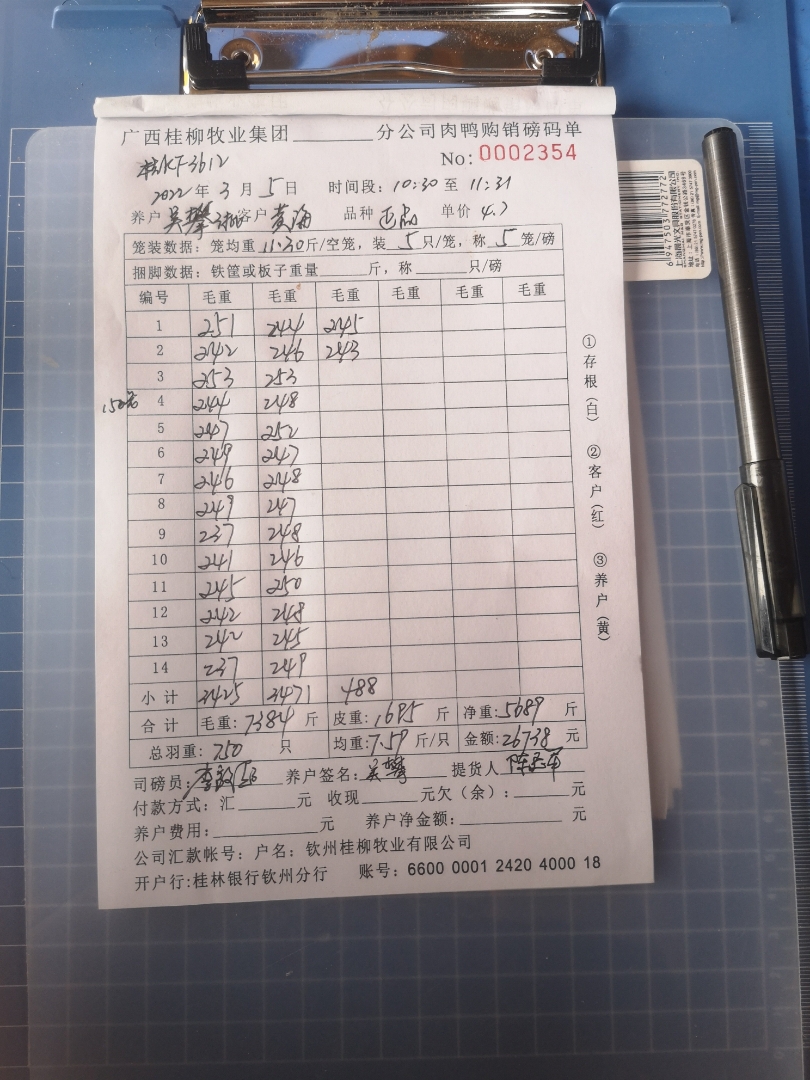 广西桂柳牧业集团______分公司肉鸭购销磅码单
No: 0002354
2022年 3月 5日 时间段: 10:30 至 11:31
养户 吴攀 客户 黄海 品种 单价 4.7
笼装数据: 笼均重 11.30 斤/空笼, 装 5 只/笼, 称 5 笼/磅
捆脚数据: 铁筐或板子重量______斤, 称______只/磅
编号 毛重 毛重 毛重 毛重 毛重 毛重
1 251 244 245
2 242 246 243
3 253 253
4 244 248
5 247 252
6 249 247
7 246 248
8 249 247
9 237 248
10 241 246
11 245 250
12 242 248
13 242 245
14 237 249
小计 3425 3471 488
合计 毛重: 7384 斤 皮重: 1695 斤 净重: 5689 斤
总羽重: 750 只 均重: 7.59 斤/只 金额: 26738 元
司磅员: 养户签名: 吴攀 提货人
付款方式: 汇______元 收现______元欠(余): ______元
养户费用: ______元 养户净金额: ______元
公司汇款帐号: 户名: 钦州桂柳牧业有限公司
开户行:桂林银行钦州分行 账号: 6600 0001 2420 4000 18
①存根(白) ②客户(红) ③养户(黄)
6947503772772